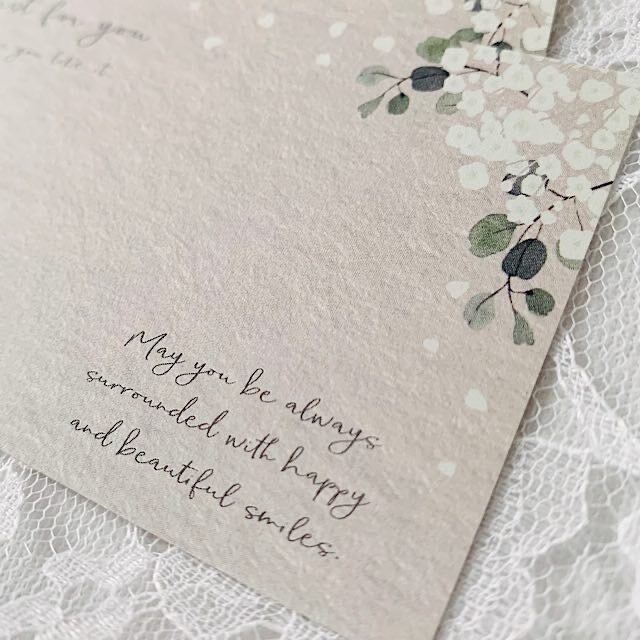 for you
May you be always
surrounded with happy
and beautiful smiles.